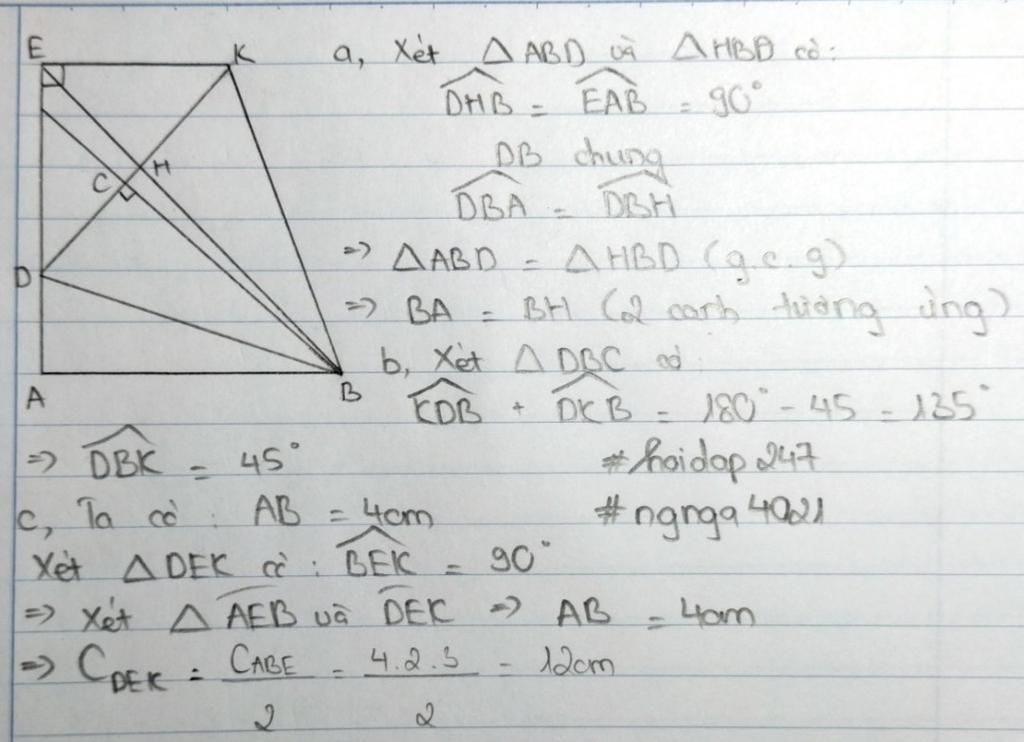 E K
a, Xét △ABD và △HBD có:
DHB = EAB = 90°
DB chung
C H
DBA = DBH
=> △ABD = △HBD (g.c.g)
D
=> BA = BH (2 cạnh tương ứng)
b, Xét △DBC có
A B
KDB + DKB = 180° - 45 = 135°
=> DBK = 45°
#hoidap247
c, Ta có: AB = 4cm
#ngnga4021
Xét △DEK có: BEK = 90°
=> Xét △AEB và DEK => AB = 4cm
=> C_DEK = C_ABE/2 = 4.2.3/2 = 12cm